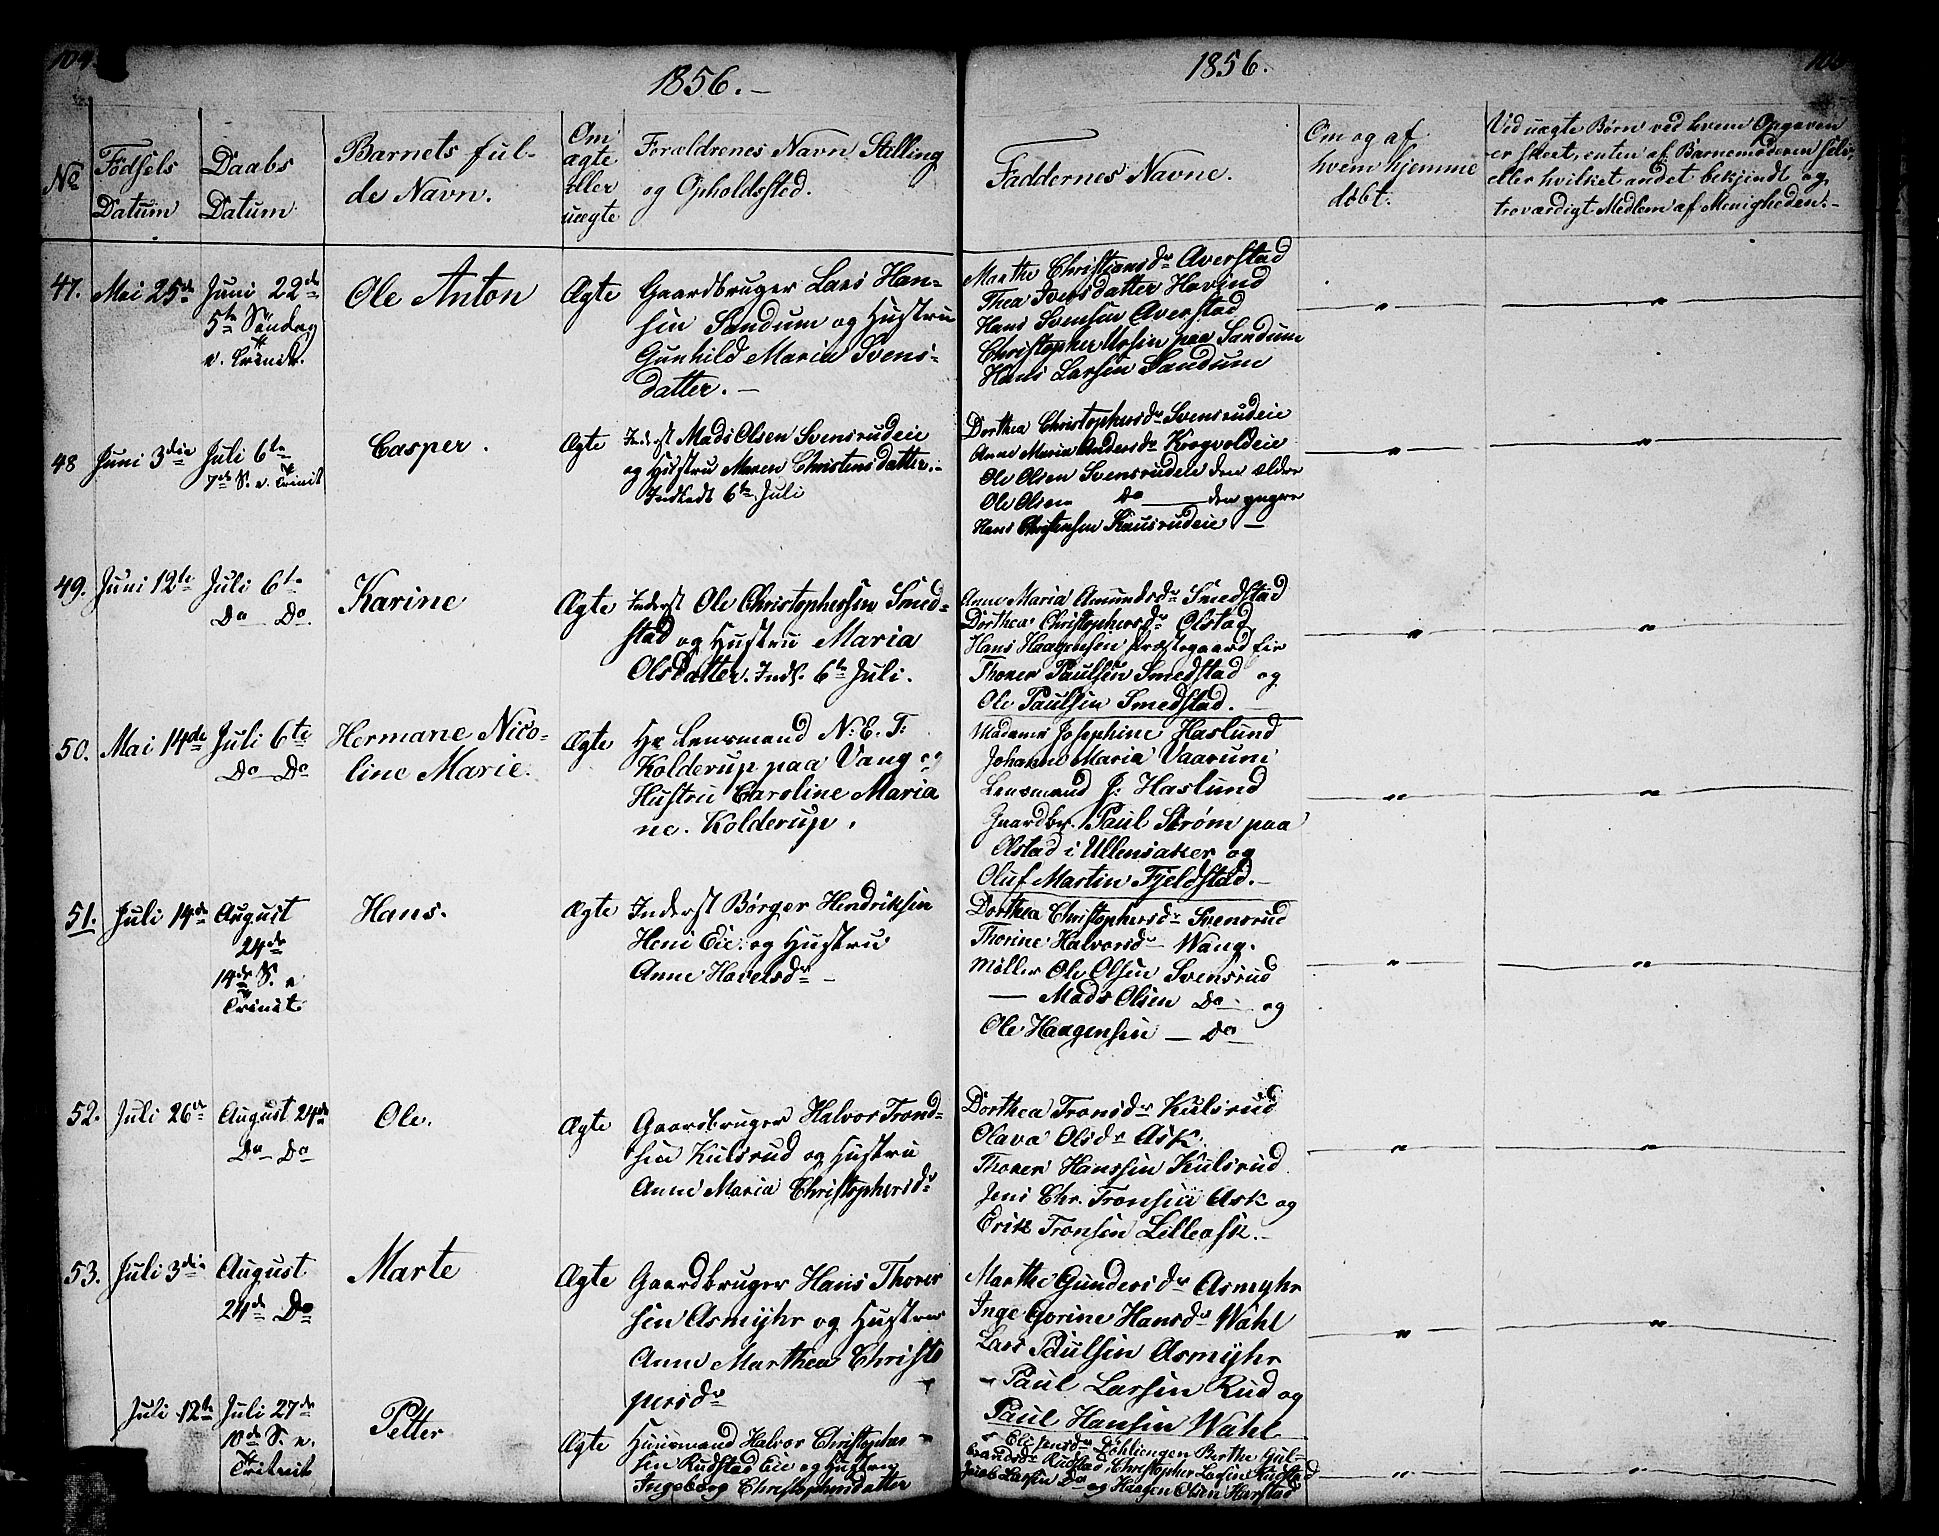 104
1856.
No
Fødsels
Datum
Daabs
Datum
Barnets ful-
de Navn.
Om
ægte
eller
uægte
Forældrenes Navn Stilling
og Opholdssted.
47.
Mai 25de
Juni 22de
5te Søndag
e. Trinit.
Ole Anton
Ægte
Gaardbruger Lars Han-
sen Sandum og Hustru
Gunhild Maria Svens-
datter.
48
Juni 3die
Juli 6te
7de S. e. Trinit
Casper.
Ægte
Inderst Mads Olsen Svensrudeie
og Hustru Maren Christensdatter.
Indledt 6te Juli
49.
Juni 12te
Juli 6te
Do Do
Karine
Ægte
Inderst Ole Christophersen Smed-
stad og Hustru Maria
Olsdatter. Indl. 6te Juli.
50.
Mai 14de
Juli 6te
Do Do
Hermane Nico-
line Marie.
Ægte
Hr Lensmand N: E. T:
Kolderup paa Vang og
Hustru Caroline Maria
ne. Kolderup.
51.
Juli 14de
August
24de
14de S. e
Trinit
Hans.
Ægte
Inderst Børger Hendriksen
Heni Eie. og Hustru
Anne Harelsdr
52.
Juli 26de
August 24de
Do Do
Ole.
Ægte
Gaardbruger Halvor Trond-
sen Kulsrud og Hustru
Anne Maria Christophersdr
53.
Juli 3die
August
24de Do
Marte
Ægte
Gaardbruger Hans Thorer
sen Asmyhr og Hustru
Anne Marthea Christo
persdr
Juli 12te
Juli 27de
10de S. e.
Trinit
Petter
Ægte
Huusmand Halvor Christopher
sen Rudstad Eie og Hustru
Ingeborg Christophersdatter
1856.
Faddernes Navne.
Om og af
hvem hjemme
døbt.
Ved uægte Børn ved hvem Opgaven
er skeet, enten af Barnemoderen selv,
eller hvilket andet bekjendt og
troværdigt Medlem af Menigheden.
Marthe Christiansdr Averstad
Thea Iversdatter Havind
Hans Svensen Averstad
Christopher Ursin paa Sandum
Hans Larsen Sandum
" "
Dorthea Christophersdr Svensrudeie
Anne Maria Andersdr Krogvoldeie
Ole Olsen Svensrudeie den ældre
Ole Olsen Do den yngre
Hans Christensen Kausrudeie
" "
Anne Maria Amundsdr Smedstad
Dorthea Christophersdr Olstad
Hans Haagensen Præstegaard Eie
Thorer Paulsen Smedstad og
Ole Paulsen Smedstad.
" "
Madame Josephine Haslund
Johanne Maria Vaarum
Lensmand J: Haslund
Gaardbr. Paul Strøm paa
Olstad i Ullensaker og
Oluf Martin Fjeldstad.
" "
Dorthea Christophersdr Svensrud
Thorine Halvorsdr Wang.
Møller Ole Olsen Svensrud
— Mads Olsen Do og
Ole Haagensen — Do
" "
Dorthea Tronsdr Kulsrud
Olava Olsdr Ask.
Thorer Hanssen Kulsrud
Jens Chr. Tronsen Ask og
Erik Tronsen Lilleask.
" "
Marthe Gundersdr Asmyhr
Inge Gorine Hansdr Wahl
Lars Paulsen Asmyhr
Paul Larsen Rud og
Paul Hansen Wahl
" "
Dohliengen Berthe Gul-
brandsdr Rudstad, Christopher Larsen Rudstad
Jacob Larsen Do og Haagen Olsen Harstad
" "